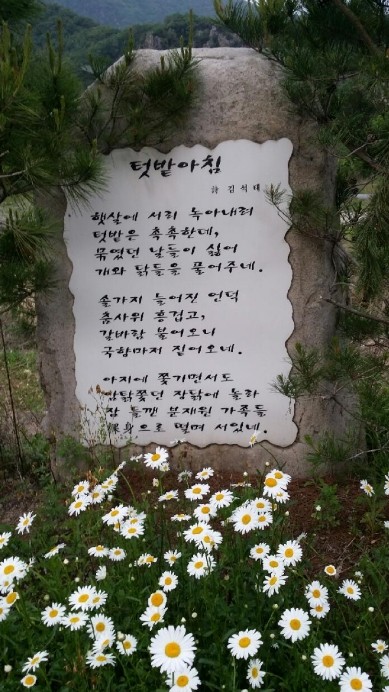 텃밭아침
詩 김석태
햇살에 서리 녹아내려
텃밭은 촉촉한데,
묶였던 날들이 싫어
개와 닭들을 풀어주네.
솔가지 늘어진 언덕
춤사위 흥겹고,
갈바람 불어오니
국향마저 짙어오네.
아지에 쫓기면서도
암탉쫓던 장닭에 놀라
잠 들깬 분재원 가족들
裸身으로 떨며 서있네.